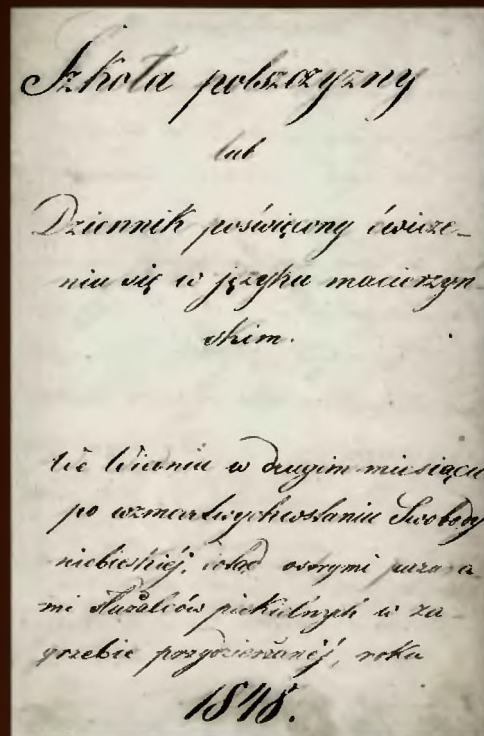 Szkoła polszczyzny
lub
Dziennik poświęcony ćwicze-
niu się w języku macierzyn-
skim.
We Wiedniu w drugim miesiącu
po wzmartwychwstaniu Swobody
niebieskiéj, ostrymi pazura-
mi piekielnych w za-
grzebie przydzierżanéj, roku
1848.